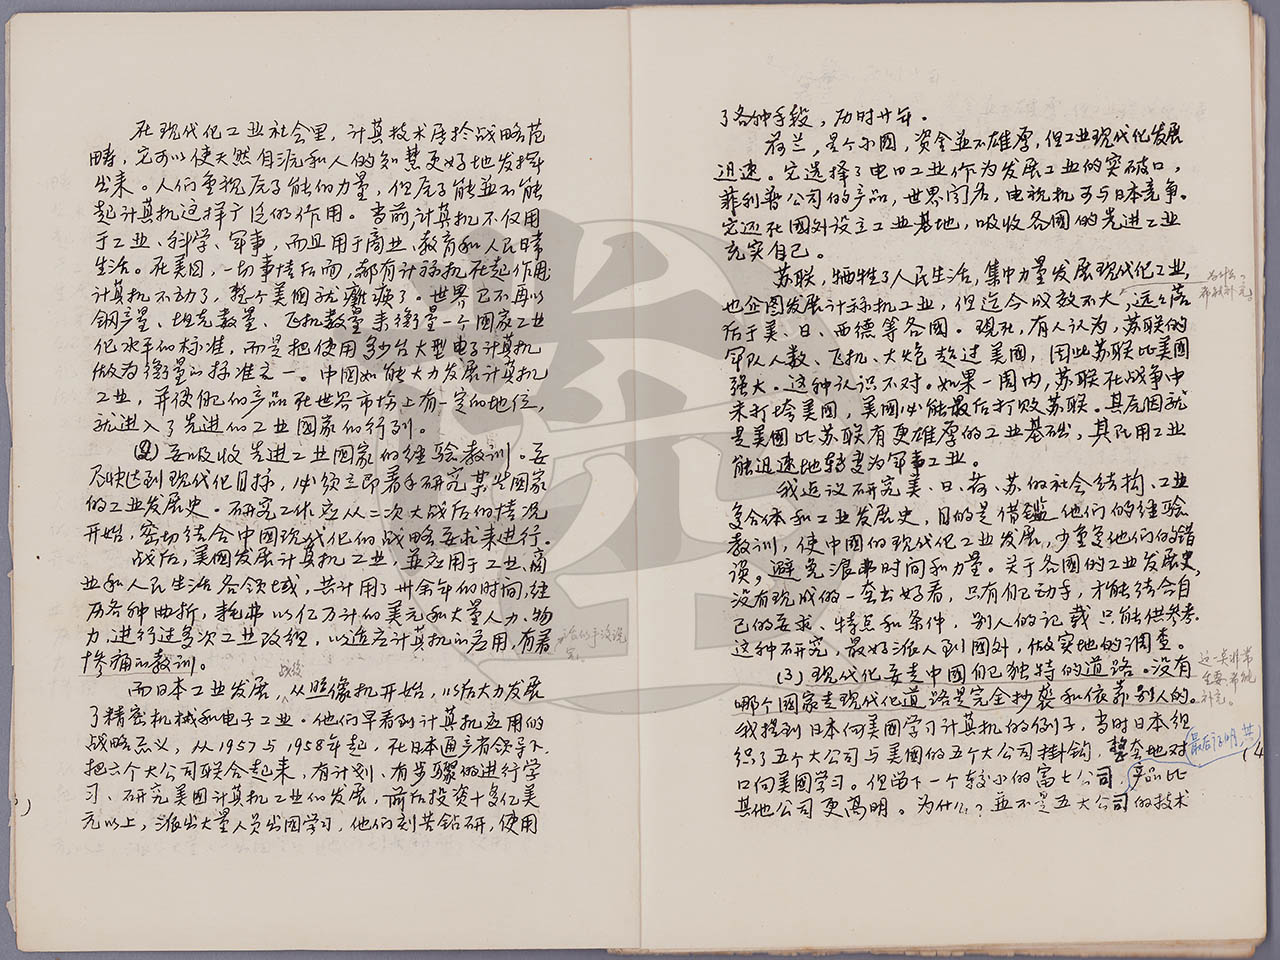 在现代化工业社会里，计算技术属于战略范
畴，它可以使天然自流和人的知慧更好地发挥
出来。人们重视原子能的力量，但原子能並不能
起计算机这样广泛的作用。当前，计算机不仅用
于工业、科学、军事，而且用于商业、教育和人民日常
生活。在美国，一切事情后面，都有计祘机在起作用，
计算机不动了，整个美國就瘫痪了。世界已不再以
钢产量、坦克数量、飞机数量来衡量一个國家工业
化水平的标准，而是把使用多少台大型电子计算机
做为衡量的标准之一。中國如能大力发展计算机
工业，并使他的产品在世界市场上有一定的地位，
就进入了先进的工业國家的行列。
(2)要吸收先进工业國家的经验教训。要
尽快达到现代化目标，必须立即着手研究某些國家
的工业发展史。研究工作应从二次大战后的情况
开始，密切结合中國现代化的战略要求来进行。
战后，美國发展计算机工业，並应用于工业、商
业和人民生活各领域，共计用了卅余年的时间，经
历各种曲折，耗费以亿万计的美元和大量人力、物
力，进行过多次工业改组，以适应计算机的应用，有着
惨痛的教训。
战後
而日本工业发展，从照像机开始，以后大力发展
了精密机械和电子工业。他们早看到计算机应用的
战略意义，从1957与1958年起，在日本通产省领导下，
把六个大公司联合起来，有计划、有步骤的进行学
习、研究美國计算机工业的发展，前后投资十多亿美
元以上，派出大量人员出國学习，他们刻苦钻研，使用
了各种手段，历时廿年。
荷兰，是个小國，资金並不雄厚，但工业现代化发展
迅速。它选择了电口工业作为发展工业的突破口，
菲利普公司的产品，世界闻名，电视机可与日本竞争。
它还在國外设立工业基地，吸收各國的先进工业
充实自己。
苏联，牺牲了人民生活，集中力量发展现代化工业，
也企图发展计祘机工业，但迄今成效不大，远远落
后于美、日、西德等各國。现在，有人认为，苏联的
军队人数、飞机、大炮超过美國，因此苏联比美國
强大。这种认识不对。如果一周内，苏联在战争中
未打垮美國，美國必能最后打败苏联。其原因就
是美國比苏联有更雄厚的工业基础，其民用工业
能迅速地转变为军事工业。
我建议研究美、日、荷、苏的社会结构、工业
复合体和工业发展史，目的是借鑑他们的经验
教训，使中國的现代化工业发展，少重复他们的错
误，避免浪费时间和力量。关于各國的工业发展史，
没有现成的一套出好看，只有自己动手，才能结合自
己的要求、特点和条件，别人的记载只能供参考。
这种研究，最好派人到國外，做实地的调查。
(3)现代化要走中國自己独特的道路。没有
哪个國家走现代化道路是完全抄袭和依靠别人的。
我提到日本向美國学习计算机的例子，当时日本组
织了五个大公司与美國的五个大公司掛钩，整个地对
口向美國学习。但留下一个较小的富士公司，产品比
其他公司更高明。为什么？並不是五大公司的技术
这一类非常
重要，希能
补充。